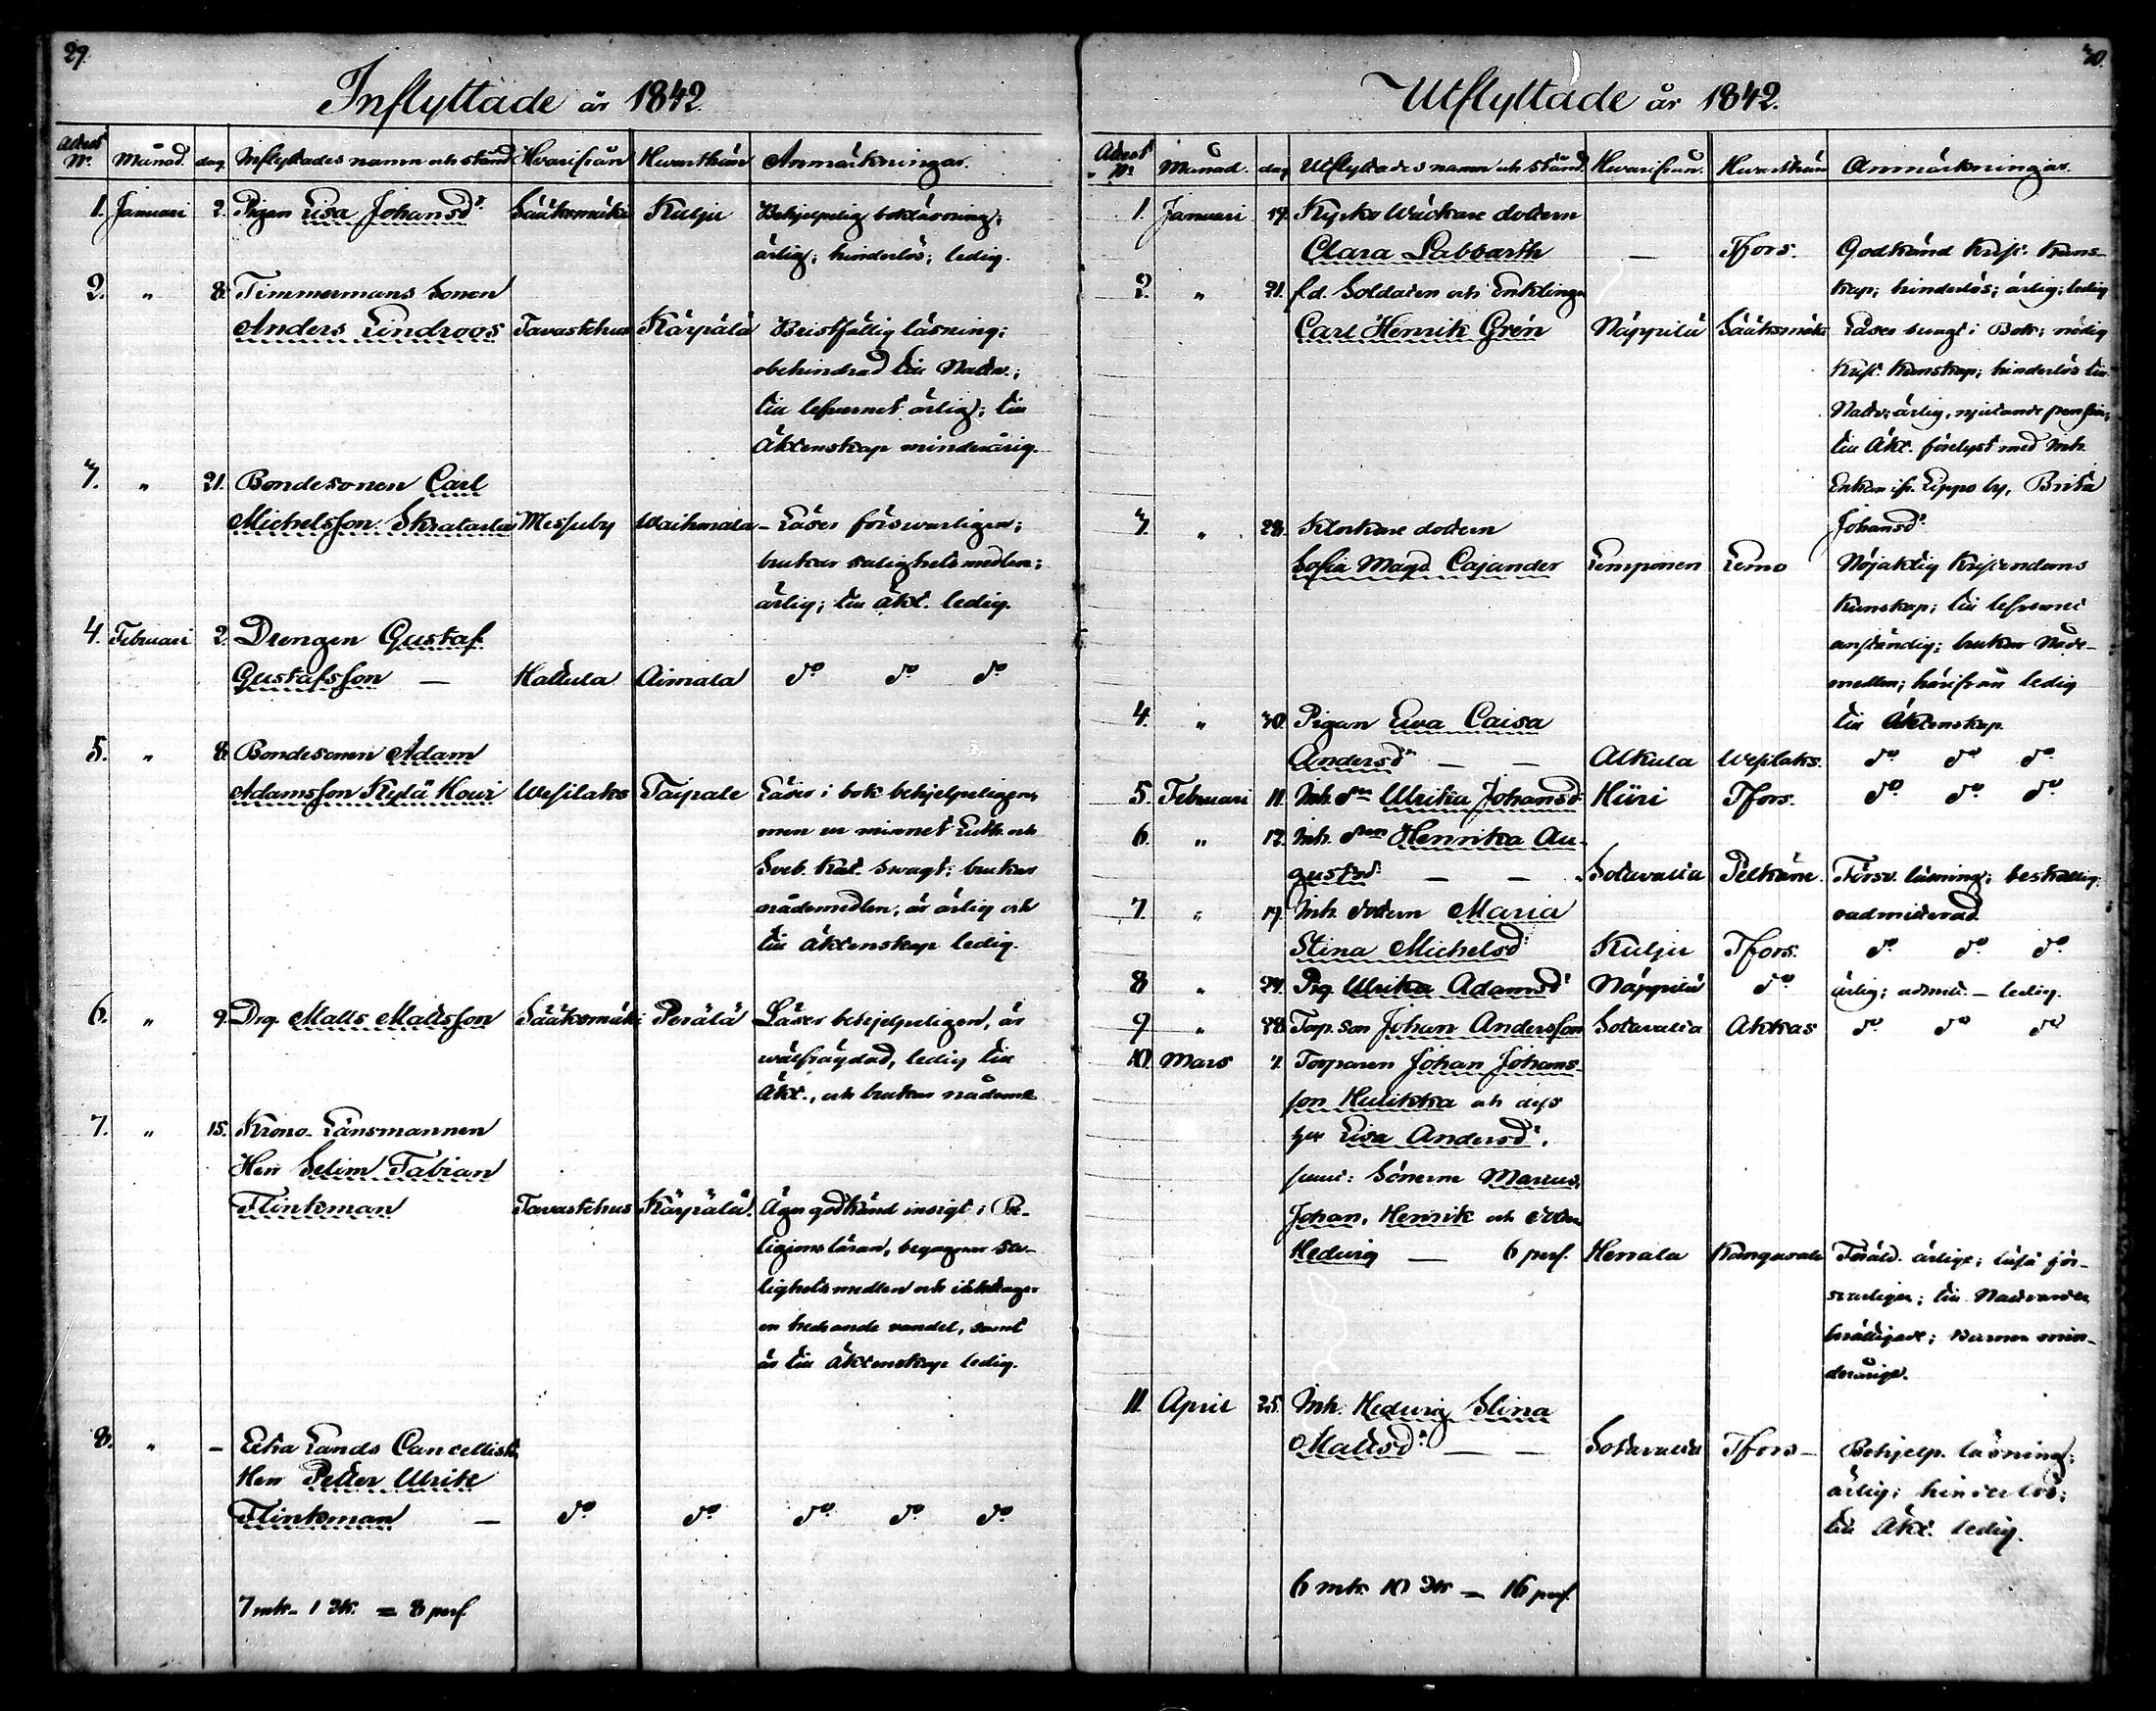 29.
Inflyttade år 1842.
Attest N:o Månad. dag Inflyttades namn och stånd Hvarifrån Hvarthän Anmärkningar.
1. Januari 2. Pigan Lisa Johansd:r Sääksmäki Kulju Behjelpelig bokläsning;
ärlig; hinderlös; ledig.
2. " 8. Timmermans Sonen
Anders Lindroos Tavastehus Kärpälä Bristfällig läsning;
obehindrad till Nattv.;
till lefvernet ärlig; till
Äktenskap minderårig.
3. " 21. Bondesonen Carl
Michelsson Messuby Waihmala – Läser förswarligen;
brukar salighetsmedlen;
ärlig; till äkt. ledig.
4. Februari 2. Drengen Gustaf
Gustafsson — Hattula Aimala d:o d:o d:o
5. " 8. Bondesonen Adam
Adamsson Kylä Houri Wesilaks Taipale Läser i bok behjelpeligen,
men ur minnet Luth. och
Sveb. Kat. svagt; brukar
nådemedlen, är ärlig och
till äktenskap ledig.
6. " 9. Drg. Matts Mattsson Sääksmäki Perälä Läser behjelpeligen, är
wälfrägdad, ledig till
Äkt., och brukar nådemed.
7. " 15. Krono-Länsmannen
Herr Selim Fabian
Flinkman Tavastehus Kärpälä. Äger godkänd insigt i Re-
ligionsläran, begagnar sa-
lighetsmedlen och
en vandel, samt
är till äktenskap ledig.
8. " – Extra Lands Cancellisten
Herr Petter Ulrik
Flinkman — d:o d:o d:o d:o d:o
7 mk. 1 qk. = 8 pers.
30.
Utflyttade år 1842.
Attest N:o Månad. dag Utflyttades namn och stånd. Hvarifrån. Hvarthän Anmärkningar.
1. Januari 17. Kyrko Wäcktare dottern
Clara Labbarth — Tfors. Godkänd Krist. Kuns-
2. " 21. f.d. Soldaten och Enklingen kap; hinderlös; ärlig; ledig
Carl Henrik Grén Näppilä Sääksmäki Läser svagt i Bok; nödig
Krist. Kunskap; hinderlös till
Nattv; ärlig, njutande pension;
till Äkt. förelyst med Inh.
Enkan ifr. Lippo by, Brita
3. " 28. Klockare dottern Johansd:r
Sofia Magd. Cajander Lempönen Lemo Nöjaktig Kristendoms
Kunskap; till lefvernet
anständig; brukar Nåde-
medlen; härifrån ledig
4. " 30. Pigan Ewa Caisa till Äktenskap.
Andersd:r — — Alkula Wesilaks. d:o d:o d:o
5. Februari 11. Inh. d:n Ulrika Johansd:r Hiiri Tfors. d:o d:o d:o
6. " 12. Inh. d:n Henrika Au-
gustsd: — — Sotavalla Pelkäne. Försv. läsning;
7. " 19. Inh. dottern Maria
Stina Michelsd:r Kulju Tfors. d:o d:o d:o
8 " 24. Pig. Ulrika Adamsd:r Näppilä d:o ärlig; – ledig.
9 " 28. Torp. son Johan Andersson Sotavalla Akkas d:o d:o d:o
10. Mars 7. Torparen Johan Johans-
son Hulikka och dess
h:u Lisa Andersd:r.
samt: Sönerne Marcus,
Johan, Henrik och dottern
Hedwig — 6 pers. Herrala Kangasala Föräld. ärlige; läsa för-
svarligen; till Nattvarden
berättigade; Barnen min-
derårige.
11. April 25. Inh. Hedwig Stina
Mattsd:r — — Sotavalla Tfors – Behjelp. läsning;
ärlig; hinderlös;
till Äkt. ledig.
6 mk. 10 qk. = 16 pers.